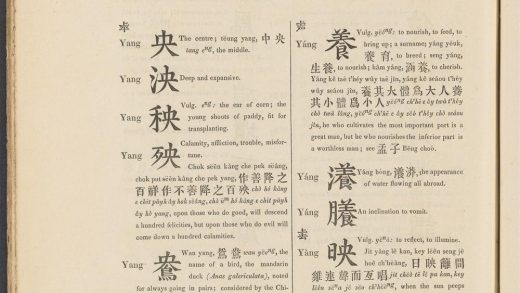 Yang 央 The centre; tëung yang, 中央
tang eⁿᵍ, the middle.
Yang 泱 Deep and expansive.
Yang 秧 Vulg. eⁿᵍ: the ear of corn; the
young shoots of paddy, fit for
transplanting.
Yang 殃 Calamity, affliction, trouble, misfor-
tune.
Chok sëēn kàng che pek sëâng,
chok put sëēn kàng che pek yang, 作善降之
百祥作不善降之百殃 chò hó kàng
hō yang, upon those who do good, will descend
a hundred felicities, but upon those who do evil will
come down a hundred calamities.
Yang 鴦 Wan yang, 鴛鴦 the
name of a bird, the mandarin
duck (Anas galericulata), noted
for always going in pairs; considered by the Chi-
Yáng 養 Vulg. to nourish, to feed, to
bring up; a surname; yáng yëuk,
養育, to breed; seng yáng,
生養, to nourish; kâm yáng, 涵養, to cherish.
Yáng kê taē t'héy wûy taē jîn, yáng kê sëáou t'héy
wûy sëáou jîn, 養其大體爲大人養
其小體爲小人
jîn, he who cultivates the most important part is a
great man, but he who nourishes the inferior part is
a worthless man; see 孟子 Bēng choó.
Yáng 瀁 Yáng bóng, the appearance
of water flowing all abroad.
Yáng An inclination to vomit.
Yáng 映 Vulg. to reflect, to illumine.
Jit yáng lê kan, key lëên seng jê
hoē ch'hèàng, 日映籬間
雞連聲而互唱
when the sun peeps